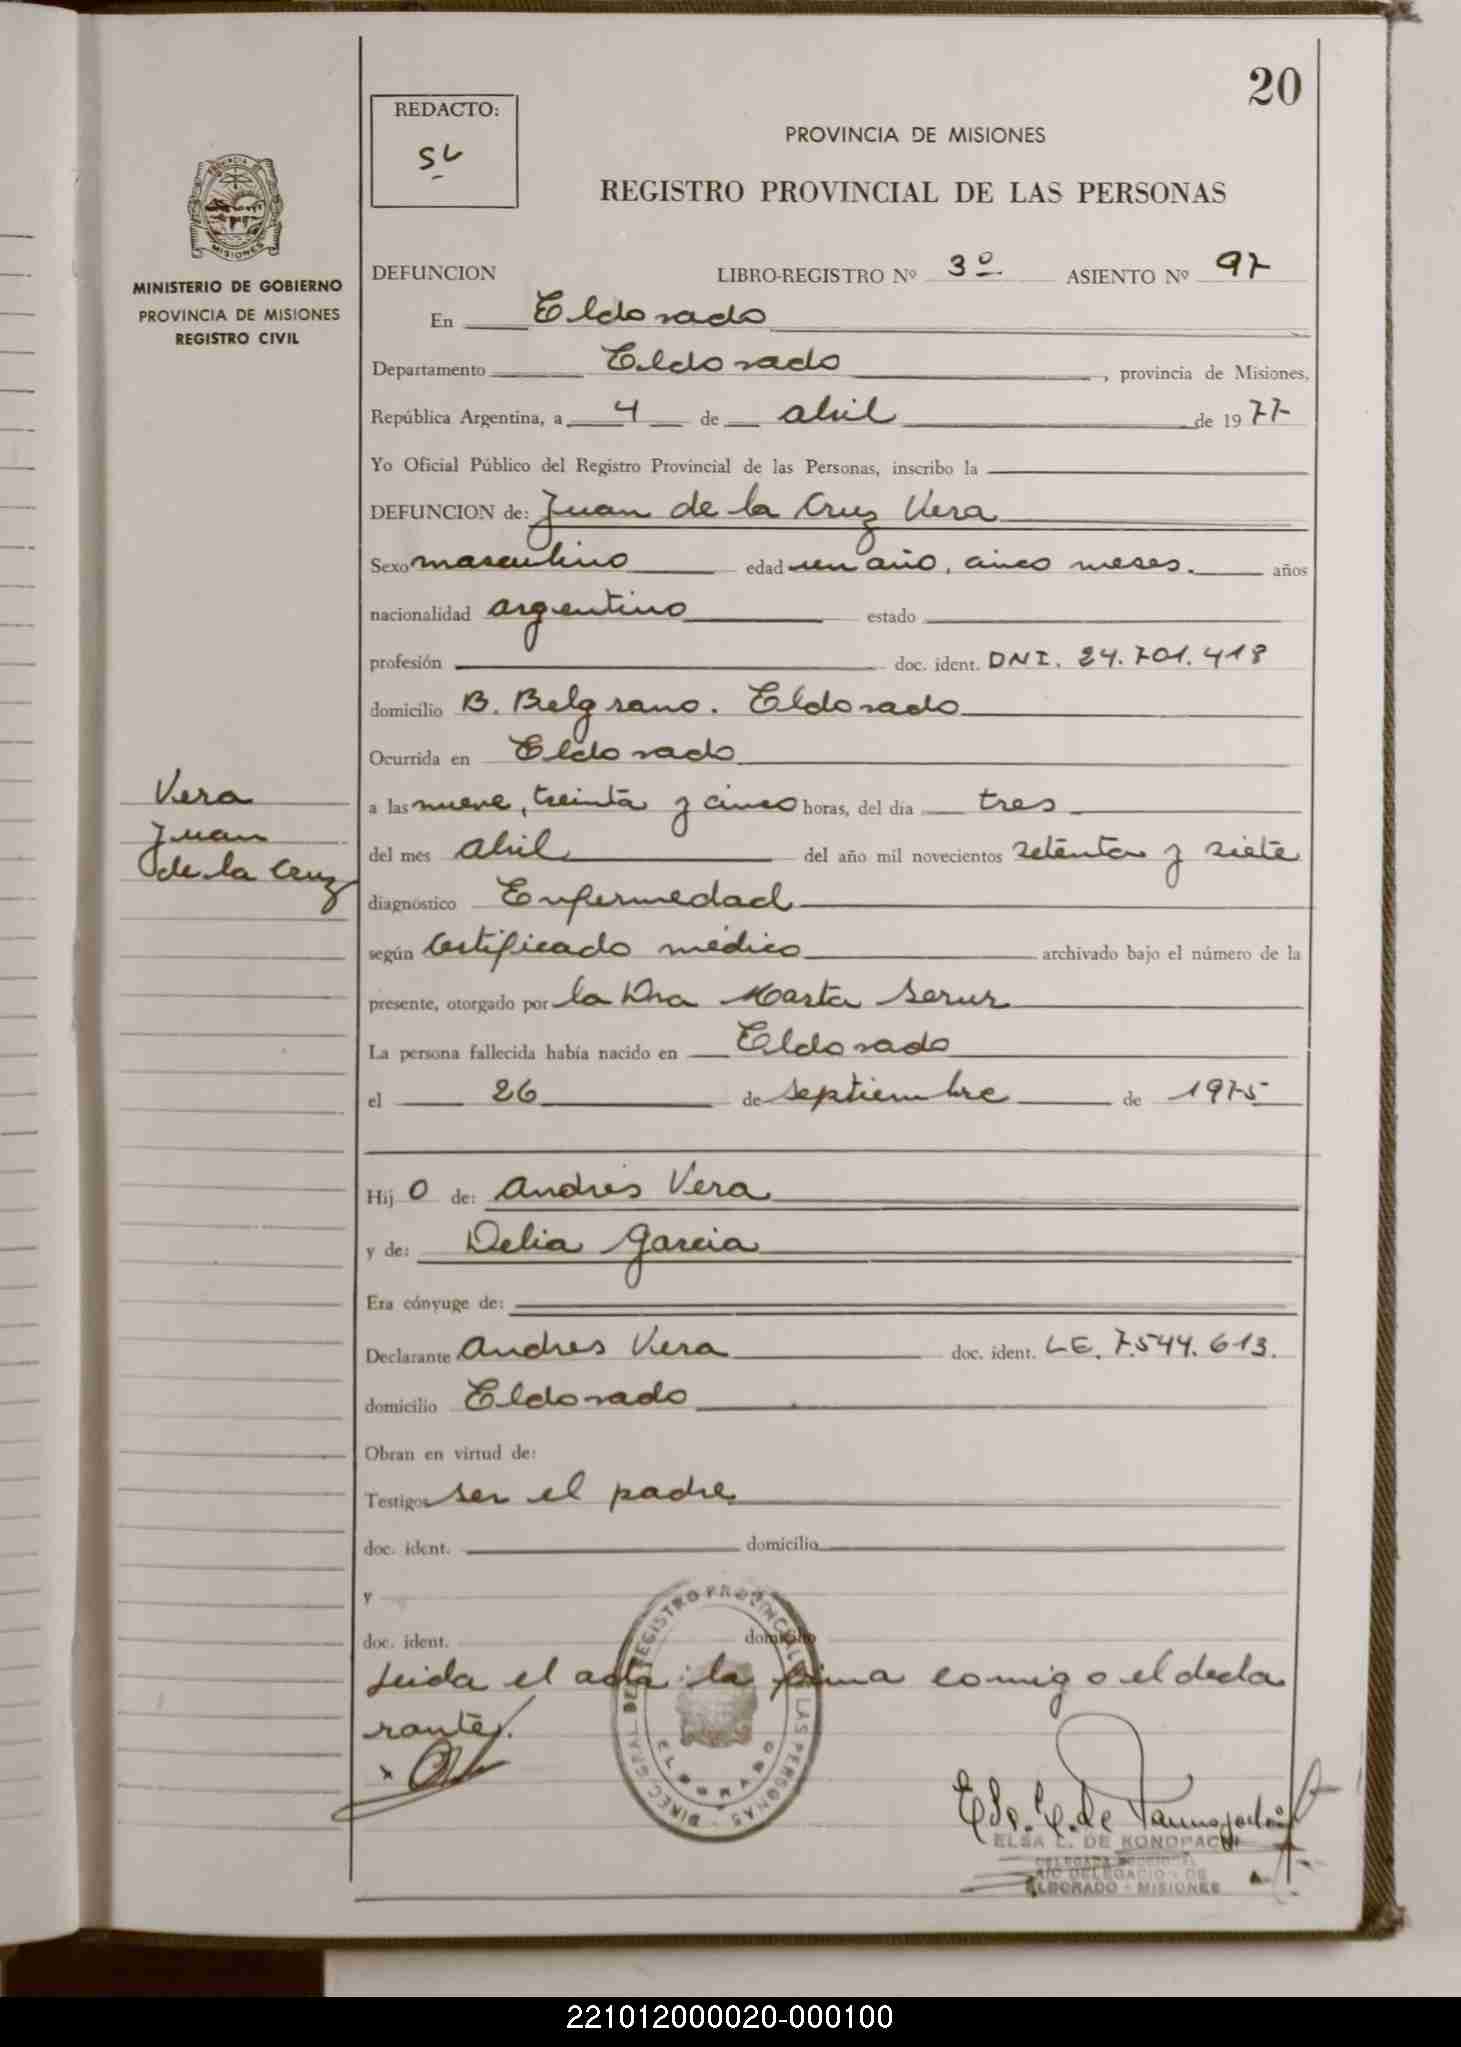 20
REDACTO:
SL
PROVINCIA DE MISIONES
REGISTRO PROVINCIAL DE LAS PERSONAS
MISIONES
MINISTERIO DE GOBIERNO
PROVINCIA DE MISIONES
REGISTRO CIVIL
DEFUNCION LIBRO-REGISTRO Nº 3º ASIENTO Nº 97
En Eldorado
Departamento Eldorado , provincia de Misiones,
República Argentina, a 4 de abril de 1977
Yo Oficial Público del Registro Provincial de las Personas, inscribo la
DEFUNCION de: Juan de la Cruz Vera
Sexo masculino edad un año, cinco meses. años
nacionalidad argentino estado
profesión doc. ident. DNI. 24.701.418
domicilio B. Belgrano. Eldorado
Ocurrida en Eldorado
Vera
Juan
de la Cruz
a las nueve, treinta y cinco horas, del día tres
del mes abril del año mil novecientos setenta y siete
diagnóstico Enfermedad
según Certificado médico archivado bajo el número de la
presente, otorgado por la Dra Marta Serur
La persona fallecida había nacido en Eldorado
el 26 de septiembre de 1975
Hij o de: Andrés Vera
y de: Delia Garcia
Era cónyuge de:
Declarante Andres Vera doc. ident. LE. 7.544.613.
domicilio Eldorado
Obran en virtud de:
Testigos ser el padre
doc. ident. domicilio
y
doc. ident. domicilio
Leida el acta la firma comigo el decla
rante.
DIREC. GRAL. DEL REGISTRO PROVINCIAL DE LAS PERSONAS
ELDORADO
ELSA C. DE KONOPACKI
DELEGADA
A/C DELEGACION DE
ELDORADO - MISIONES
221012000020-000100